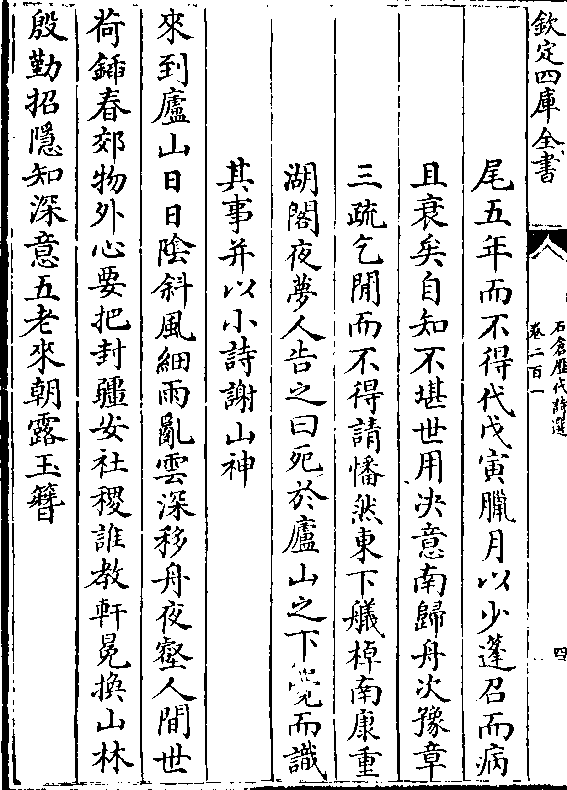 欽定四庫全書
石倉歴代詩選
卷二百一
四
尾五年而不得代戊寅臘月以少蓬召而病
且衰矣自知不堪世用决意南歸舟次豫章
三疏乞閒而不得請憣然東下艤棹南康重
湖閣夜夢人告之曰死於廬山之下覺而識
其事并以小詩謝山神
來到廬山日日隂斜風細雨亂雲深移舟夜壑人間世
荷鍤春郊物外心要把封疆安社稷誰教軒冕換山林
殷勤招隱知深意五老來朝露玉簪